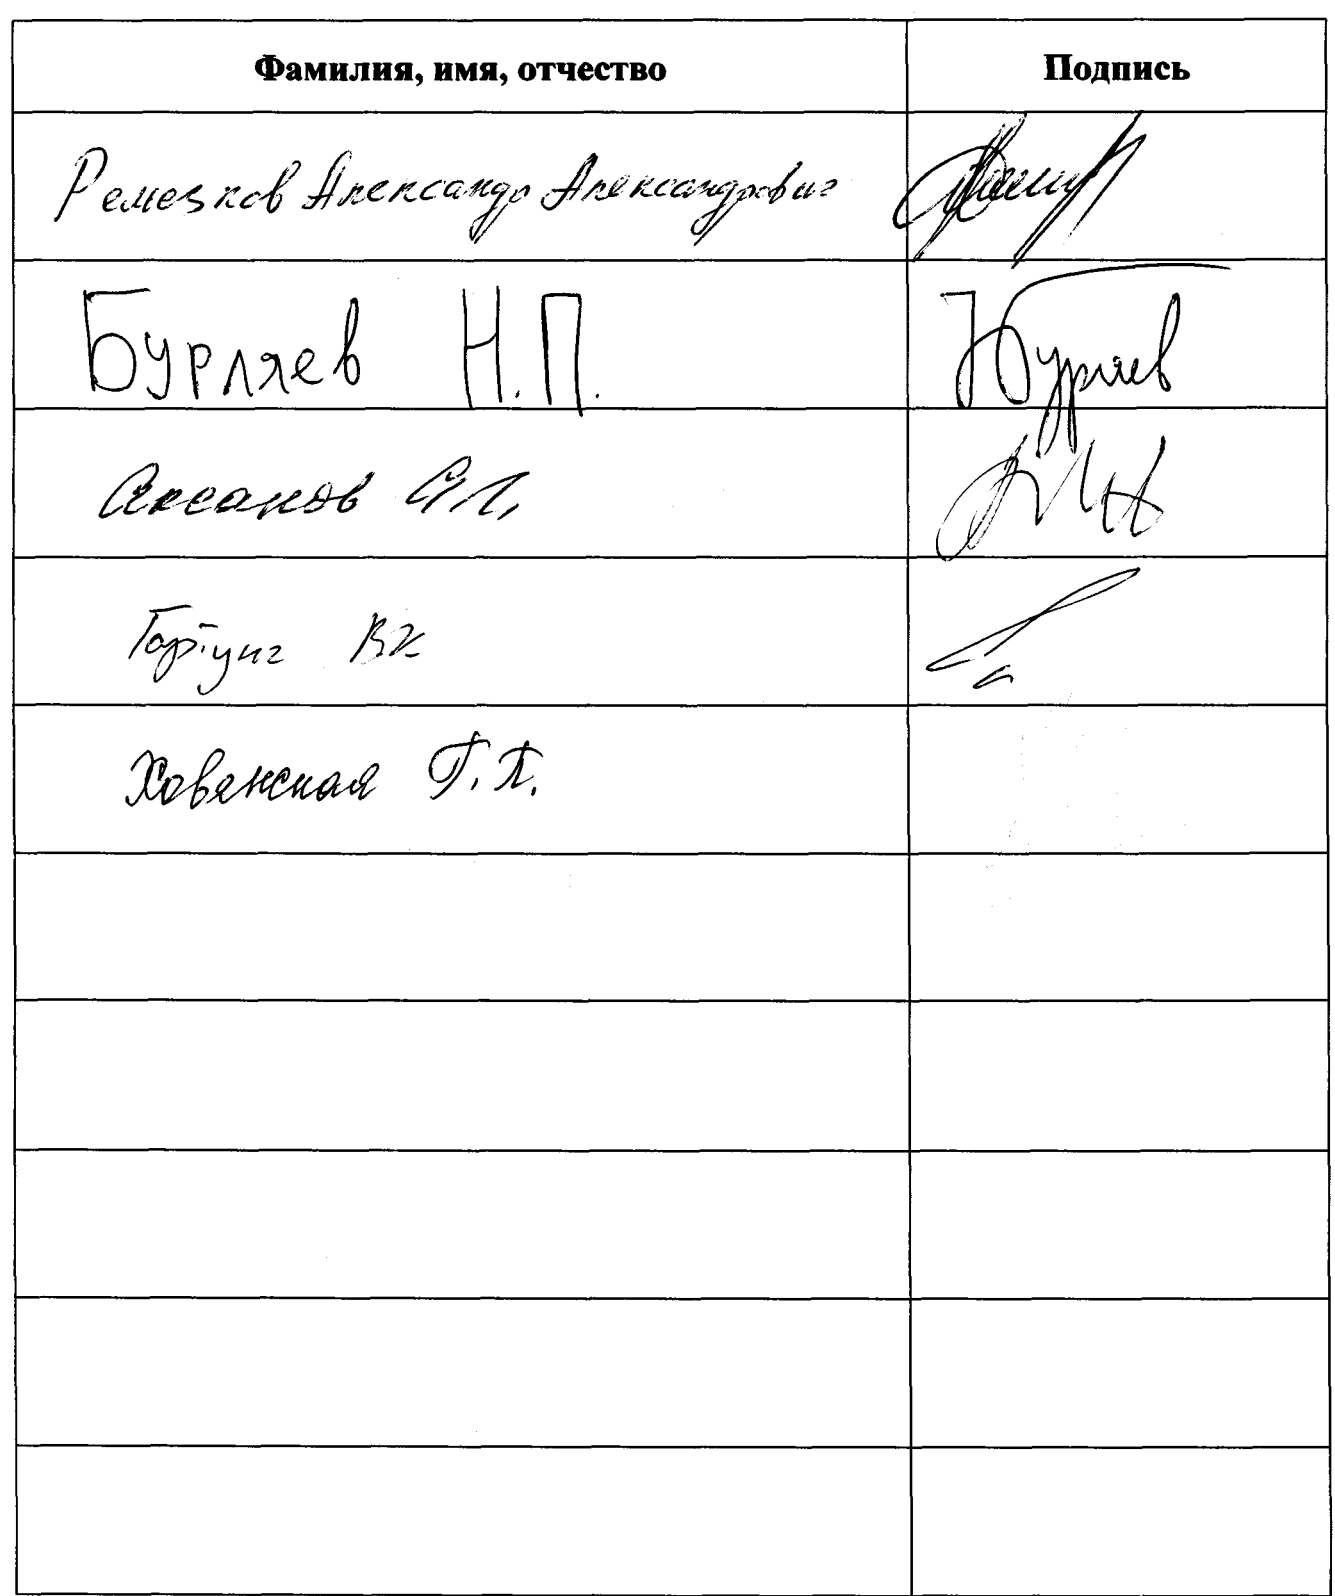 Фамилия, имя, отчество Подпись
Ремезков Александр Александрович
Бурляев Н.П. Бурляев
Аксаков
Гартунг ВК
Хованская Г.П.